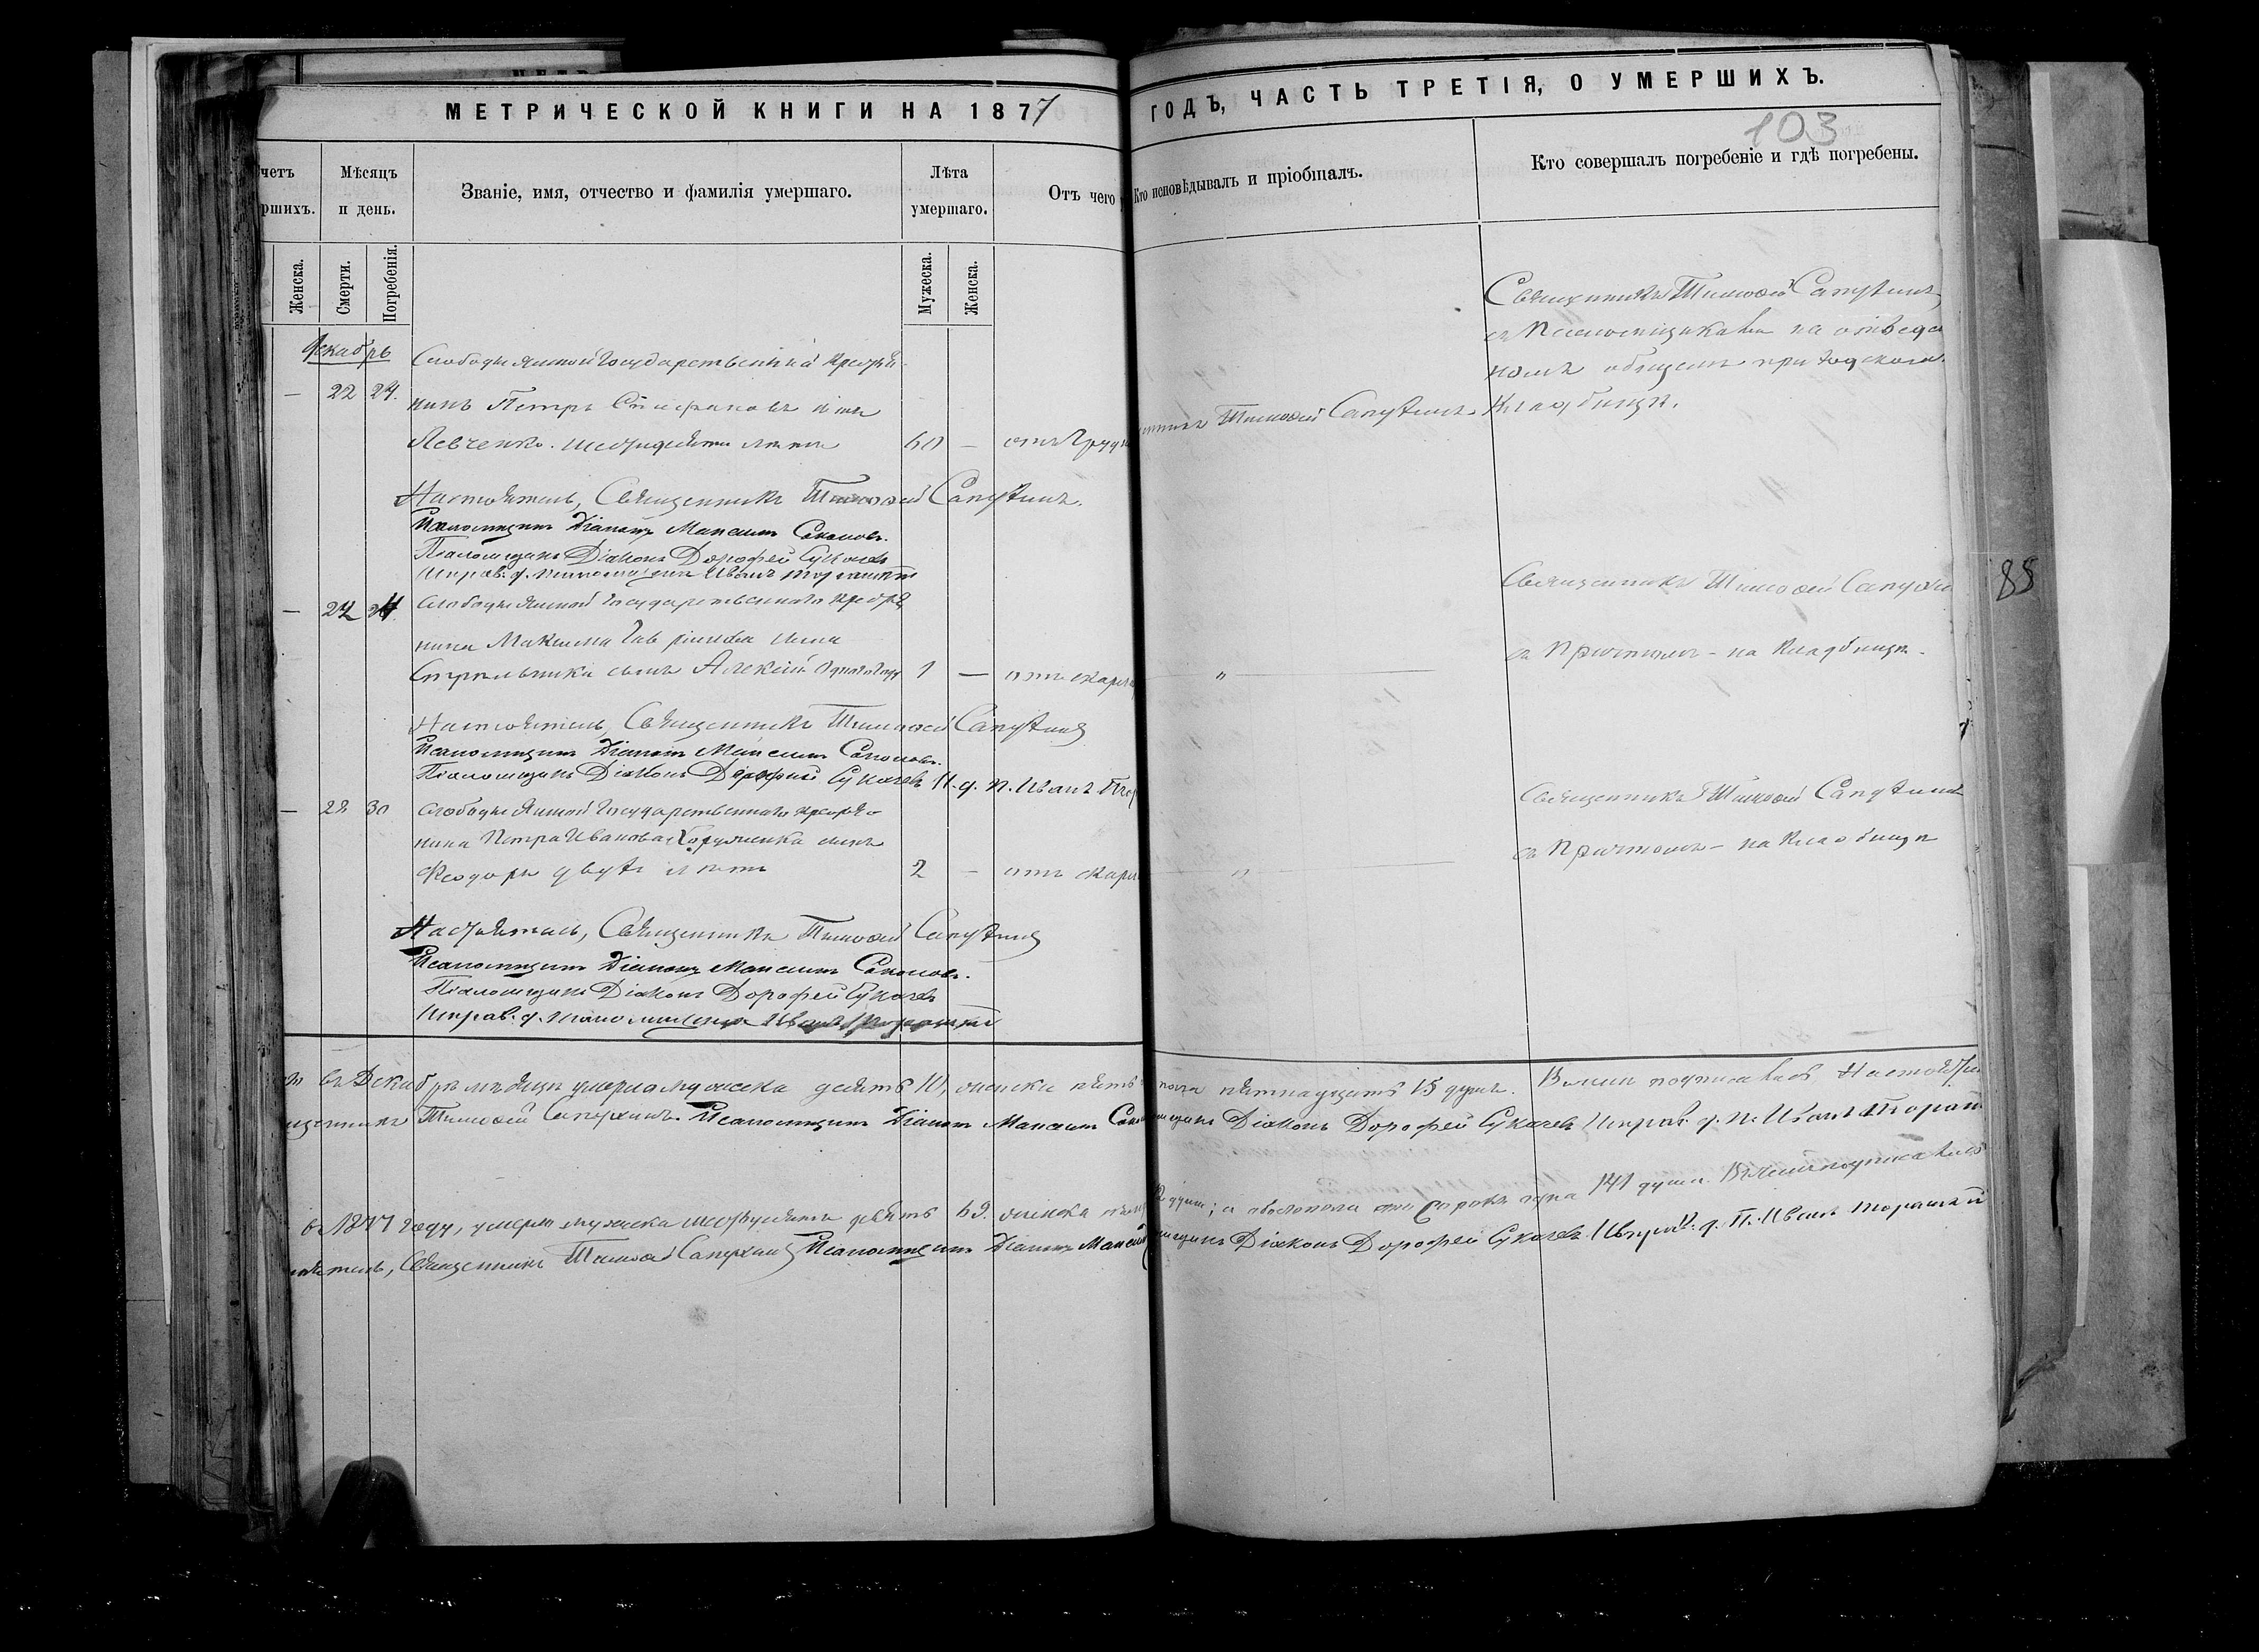 МЕТРИЧЕСКОЙ КНИГИ НА 1877 ГОДЪ, ЧАСТЬ ТРЕТІЯ, О УМЕРШИХЪ.
103
четъ
ршихъ.
Мѣсяцъ
и день.
Званіе, имя, отчество и фамилія умершаго.
Лѣта
умершаго.
Отъ чего
Кто исповѣдывалъ и пріобщалъ.
Кто совершалъ погребеніе и гдѣ погребены.
Женска.
Смерти.
Погребенія.
Мужеска.
Женска.
Декабрь
Слободы Ямной Государственный крестья-
— 22 24. нинъ Петръ Стефановъ
Левченко. шестидесяти лѣтъ 60 — отъ
Тимоѳей Сапухинъ.
Священникъ Тимоѳей Сапухинъ
на отведен
номъ общемъ приходскомъ
Кладбищѣ.
Настоятель, Священникъ Тимоѳей Сапухинъ.
Псаломщикъ Діаконъ Максимъ Соколовъ.
Псаломщикъ Діаконъ Дорофей Сукачев
Исправ. д. псаломщика Иванъ
— 27 Слободы Ямной Государственнаго крестья
нина Максима
сынъ Алексій 1 — отъ скарл
"
Священникъ Тимоѳей Сапухин
съ Причтомъ – на Кладбищѣ.
Настоятель, Священникъ Тимоѳей Сапухинъ
Псаломщикъ Діаконъ Максимъ Соколовъ.
Псаломщикъ Діаконъ Дорофей Сукачев И. д. п. Иванъ
— 28 30 слободы Ямной Государственнаго крестья-
нина Петра Иванова сынъ
Ѳеодоръ двухъ лѣтъ 2 — отъ скарл
"
Священникъ Тимоѳей Сапухинъ
съ Причтомъ – на Кладбищѣ
Настоятель, Священникъ Тимоѳей Сапухинъ
Псаломщикъ Діаконъ Максимъ Соколовъ.
Псаломщикъ Діаконъ Дорофей Сукачев
Исправ. д. псаломщика Иванъ
въ Декабрѣ мѣсяцѣ умерло мужеска десять 10, женска пять пола пятнадцать 15 душъ. Въ чемъ подписались Настоятель
щенникъ Тимоѳей Сапухинъ. Псаломщикъ Діаконъ Максимъ Діаконъ Дорофей Сукачев Исправ. д. п. Иванъ
въ 1877 году, умерло мужеска шестьдесятъ девять 69. женска душъ; а обоего пола сто сорокъ одна 141 душа. Въ чемъ подписались
Священникъ Тимоѳей Сапухинъ Псаломщикъ Діаконъ Максим Діаконъ Дорофей Сукачев. Исправ. д. п. Иванъ
85